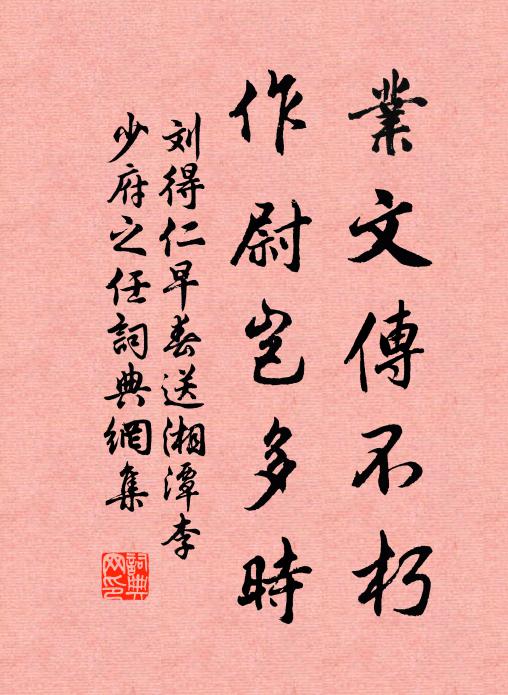 業文傳不朽
作尉豈多時
刘得仁早春送湘潭李
少府之任詞典網集
詞典
网印